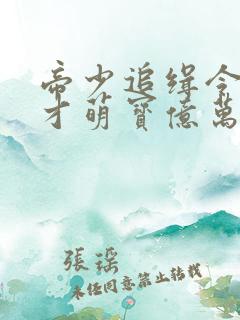 帝少追缉令
才萌寶億萬
張瑤
未经同意禁止转载